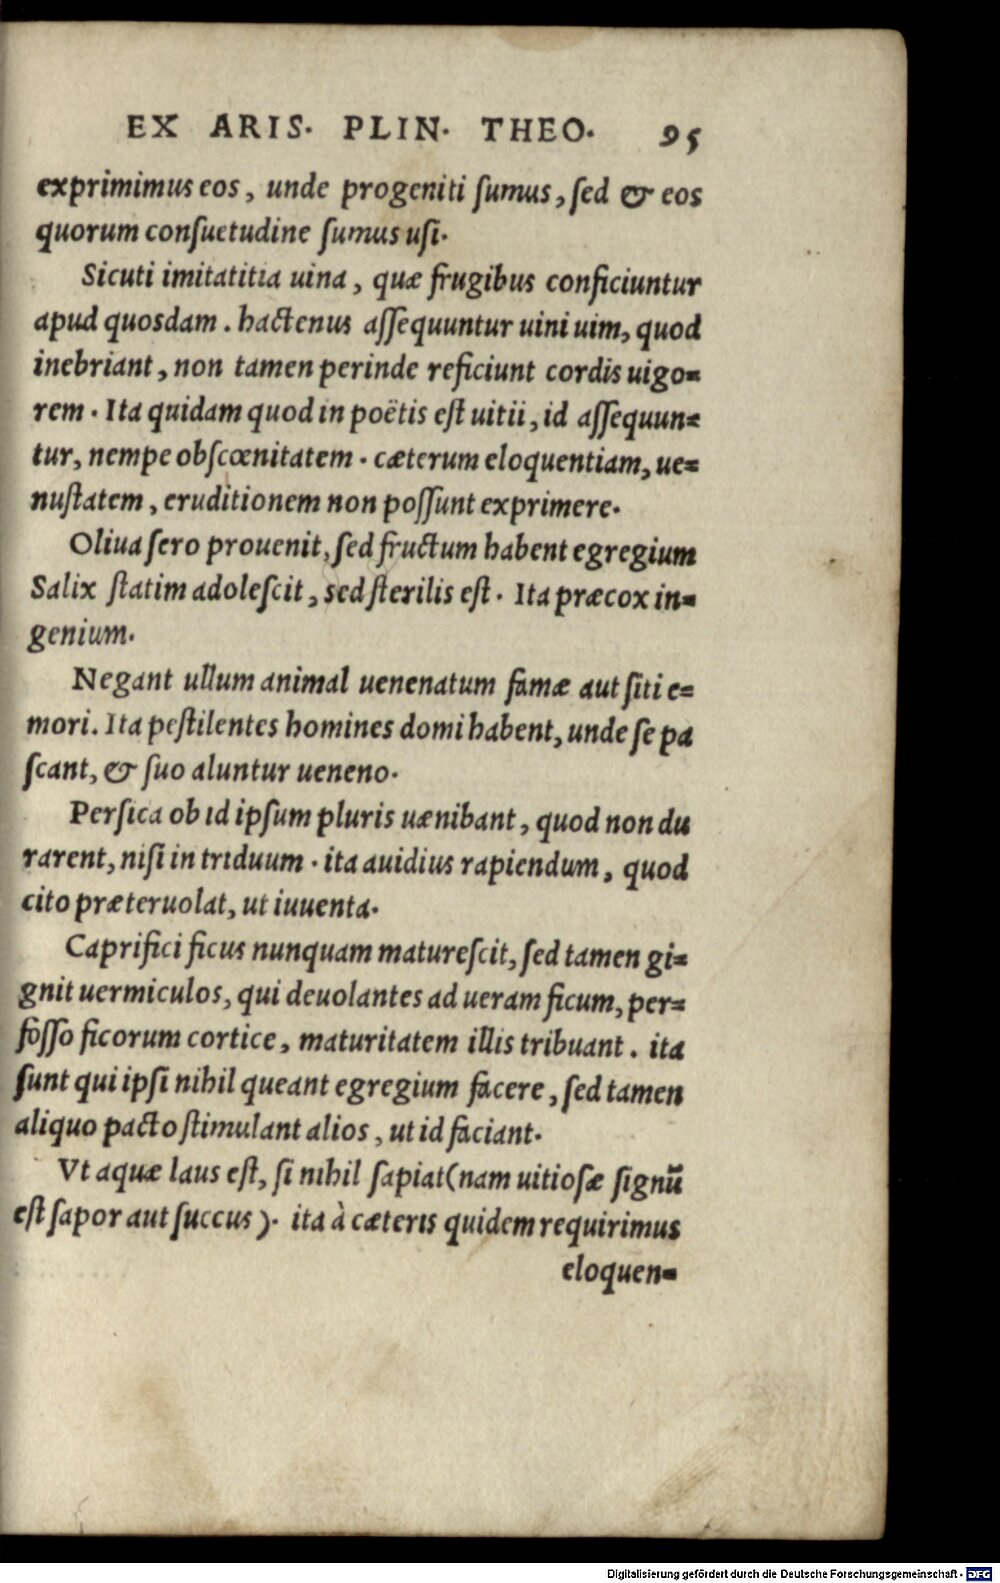 EX ARIS. PLIN. THEO. 95
exprimimus eos, unde progeniti ſumus, ſed & eos
quorum conſuetudine ſumus uſi.
Sicuti imitatitia uina, quæ frugibus conficiuntur
apud quosdam. hactenus aſſequuntur uini uim, quod
inebriant, non tamen perinde reficiunt cordis uigo=
rem. Ita quidam quod in poëtis eſt uitii, id aſſequun=
tur, nempe obſcœnitatem. cæterum eloquentiam, ue=
nuſtatem, eruditionem non poſſunt exprimere.
Oliua ſero prouenit, ſed fructum habent egregium
Salix ſtatim adoleſcit, sed ſterilis eſt. Ita præcox in=
genium.
Negant ullum animal uenenatum famæ aut ſiti e=
mori. Ita peſtilentes homines domi habent, unde ſe pa
ſcant, & ſuo aluntur ueneno.
Perſica ob id ipſum pluris uænibant, quod non du
rarent, niſi in triduum. ita auidius rapiendum, quod
cito præteruolat, ut iuuenta.
Caprifici ficus nunquam matureſcit, ſed tamen gi=
gnit uermiculos, qui deuolantes ad ueram ficum, per=
foſſo ficorum cortice, maturitatem illis tribuant. ita
ſunt qui ipſi nihil queant egregium facere, ſed tamen
aliquo pacto ſtimulant alios, ut id faciant.
Vt aquæ laus eſt, ſi nihil ſapiat(nam uitioſæ ſignū
eſt ſapor aut ſuccus). ita à cæteris quidem requirimus
eloquen=
Digitalisierung gefördert durch die Deutsche Forschungsgemeinschaft - DFG